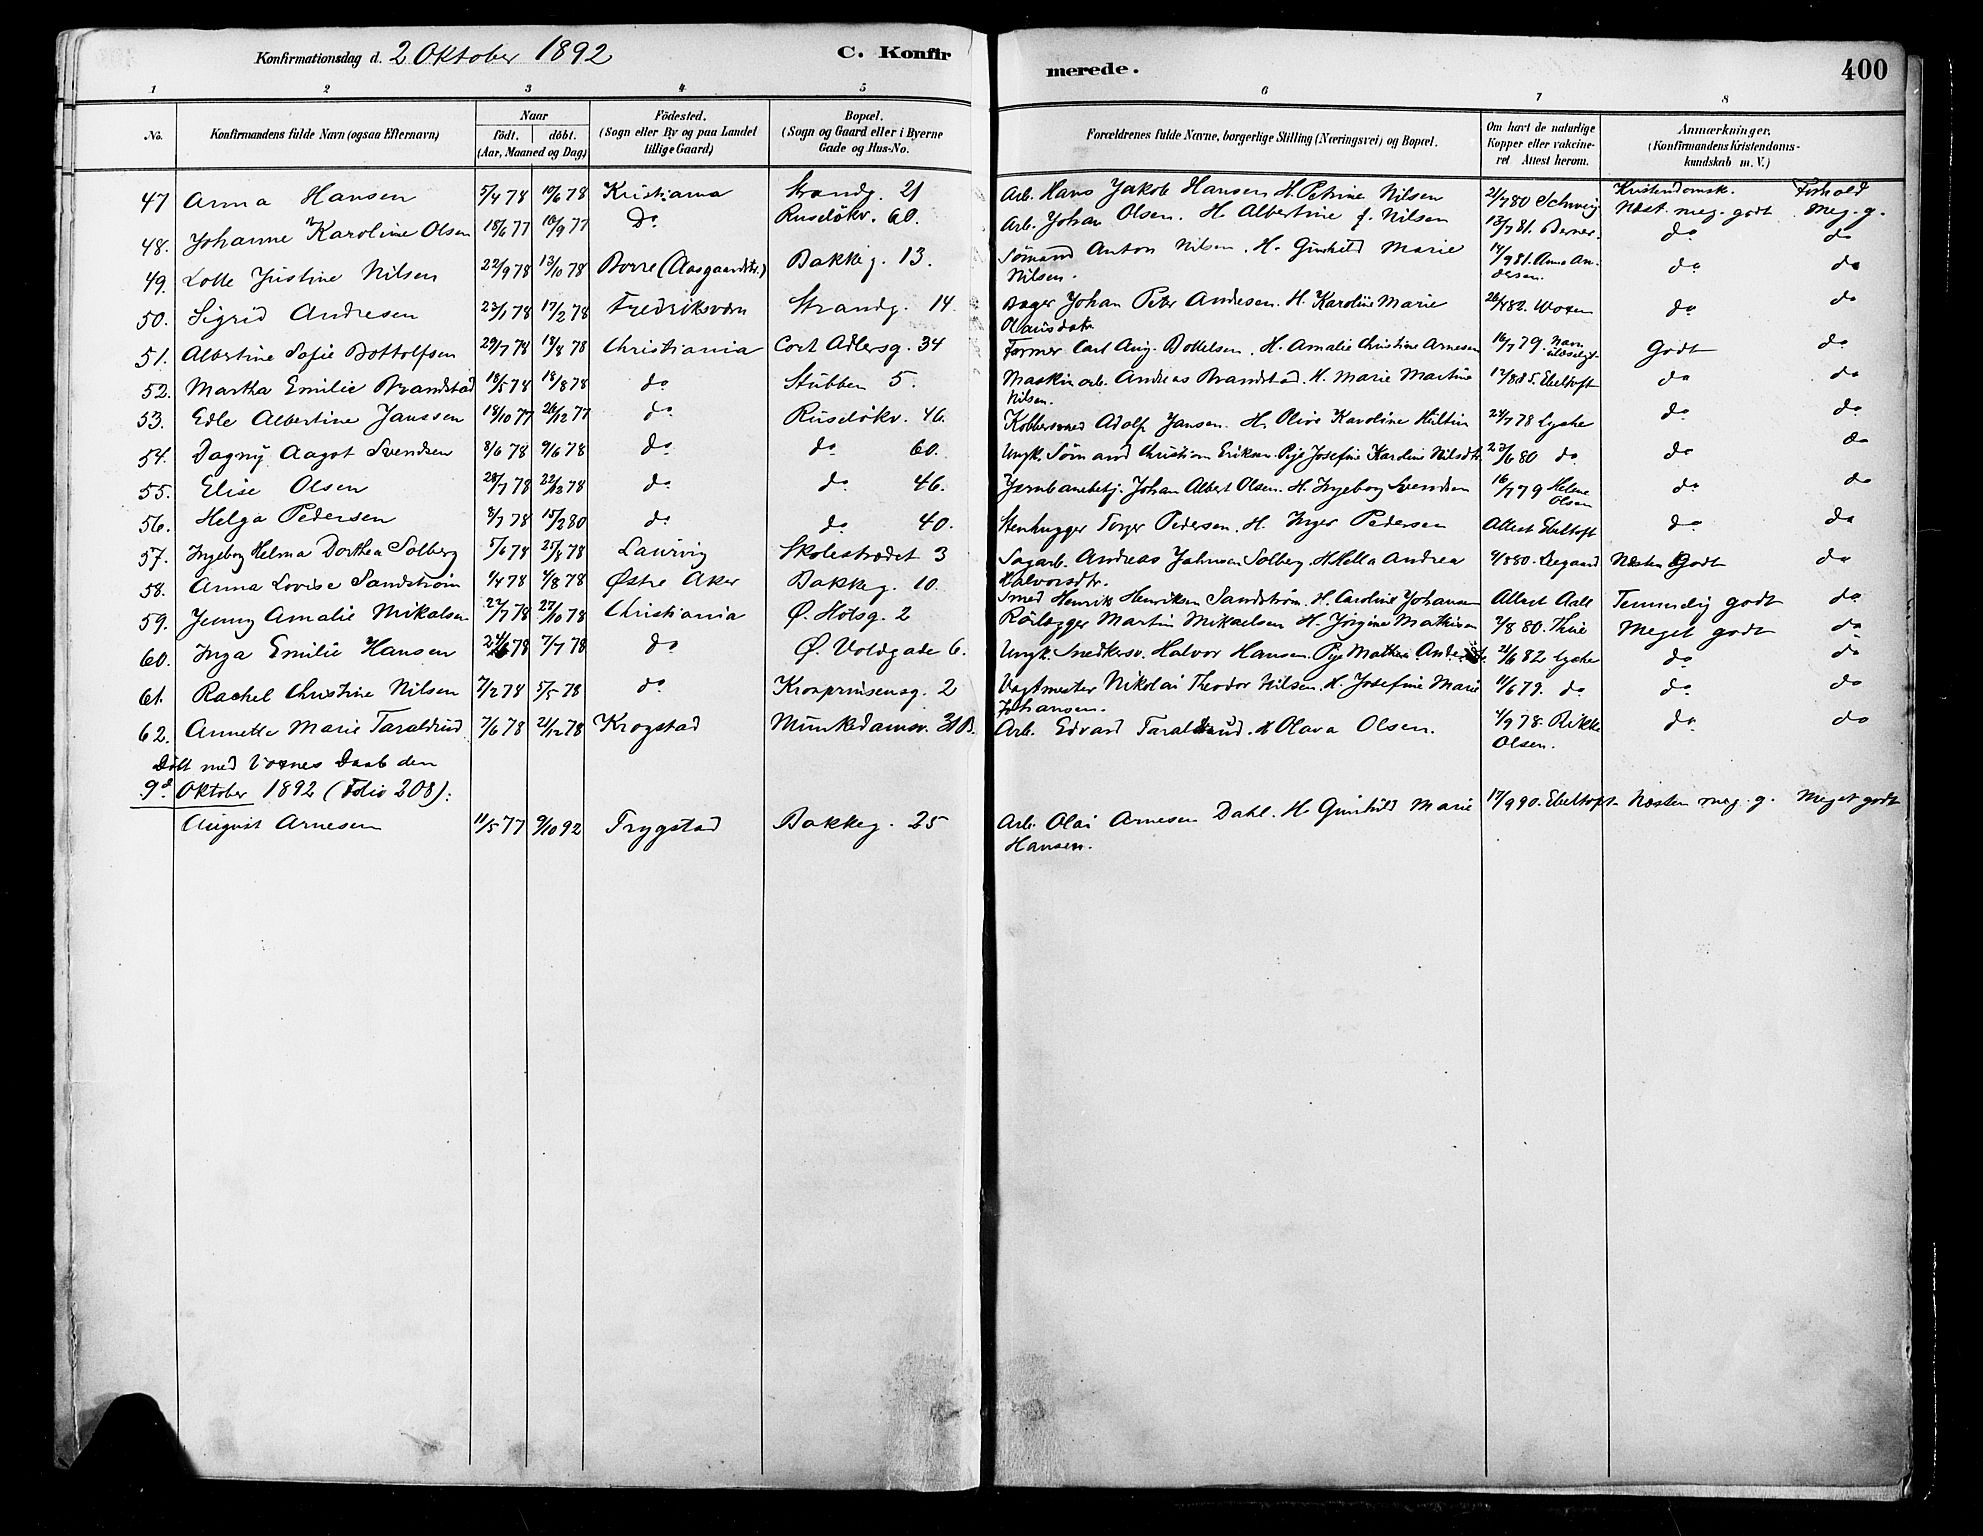 Konfirmationsdag d. 2 Oktober 1892 C. Konfirmerede. 400
1 2 3 4 5 6 7 8
No. Konfirmandens fulde Navn (ogsaa Efternavn) Naar födt. döbt. (Aar, Maaned og Dag) Födested. (Sogn eller By og paa Landet tillige Gaard) Bopæl. (Sogn og Gaard eller i Byerne Gade og Hus-No. Forældrenes fulde Navne, borgerlige Stilling (Næringsvei) og Bopæl. Om havt de naturlige Kopper eller vakcineret Attest herom. Anmærkninger. (Konfirmandens Kristendomskundskab m. V.)
47 Anna Hansen 5/4 78 10/6 78 Kristiania Strandg. 21 Arb. Hans Jakob Hansen H. Petrine Nilsen 21/7 80 Schweig Kristendomsk. Næst. meg. godt Forhold Meg. g.
48. Johanne Karoline Olsen 18/6 77 10/9 77 Do Ruselökv. 60. Arb. Johan Olsen. H. Albertine f. Nilsen 13/7 81. Berner. do do
49. Lotte Justine Nilsen 22/9 78 13/10 78 Borre (Aasgaardstr.) Bakkeg. 13. Sømand Anton Nilsen. H. Gunhild Marie Nilsen. 14/9 81. Anna Andersen. do do
50. Sigrid Andresen 23/1 78 17/2 78 Fredriksværn Strandg. 14. Bager Johan Peter Andresen. H. Karoline Marie Olausdatr. 26/4 82. Woxen do do
51. Albertine Sofie Bottolfsen 29/7 78 18/8 78 Christiania Cort Adlersg. 34 Former Carl Aug. Bottelsen. H. Amalie Christine Arnesen 16/7 79. Navn ulæseligt. Godt do
52. Martha Emilie Brandstad 18/5 78 18/8 78 do Stubben 5. Maskinarb. Andreas Brandstad. H. Marie Martine Nilsen. 12/8 85. Ebeltoft do do
53. Edle Albertine Janssen 18/10 77 26/12 77 do Ruselökv. 46. Kobbersmed Adolf Jansen. H. Olive Karoline 24/7 78 Lyche do do
54. Dagny Aagot Svendsen 8/6 78 9/6 78 do do 60. Ungk. Sømand Christian Eriksen. Pige Josefine Karoline Nilsdtr. 23/6 80 do do do
55. Elise Olsen 28/7 78 22/12 78 do do 46. Jernbanebetj. Johan Albert Olsen. H. Ingeborg Svendsen 16/7 79 Helene Olsen do do
56. Helga Pedersen 8/7 78 15/2 80 do do 40. Stenhugger Torger Pedersen. H. Inger Pedersen Attest Ebeltoft do do
57. Ingeborg Helma Dorthea Solberg 5/6 78 25/8 78 Laurvig Skolestrædet 3 Sagarb. Andreas Johnsen Solberg. H. Hella Andrea Halvorsdtr. 9/8 80. Næsten Godt do
58. Anna Lovise Sandstrøm 1/4 78 4/8 78 Østre Aker Bakkeg. 10. Smed Henrik Henriksen Sandstrøm. H. Caroline Johansen Attest Aall Temmelig godt do
59. Jenny Amalie Mikalsen 22/7 78 27/10 78 Christiania Ø. Holsg. 2 Rørlægger Martin Mikaelsen H. Jörgine Mathisen 7/8 80. Meget godt do
60. Inga Emilie Hansen 24/6 78 7/7 78 do Ø. Voldgade 6. Ungk. Snedkersv. Halvor Hansen. Pige Mathea 21/6 82 Lyche do do
61. Rachel Christine Nilsen 7/2 78 5/5 78 do Kronprinsensg. 2 Vagtmester Nikolai Theodor Nilsen. H. Josefine Marie Johansen. 11/6 79. do do do
62. Annette Marie Taraldrud 7/6 78 21/12 78 Krogstad Munkedamsv. 31B. Arb. Edvard Taraldrud. H Olava Olsen. 4/9 78. Rikke Olsen. do do
Døbt med Voxnes Daab den
9de Oktober 1892 (Folio 208):
August Arnesen 11/5 77 9/10 92 Trygstad Bakkeg. 25 Arb. Olai Arnesen Dahl. H. Gunhild Marie Hansen. 17/9 90. Ebeltoft. Næsten meg. g. Meget godt